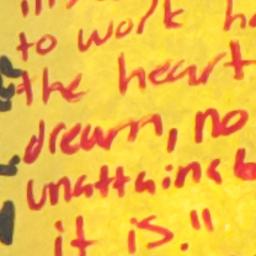 to work
the heart
dream, no
unattainab
it is."